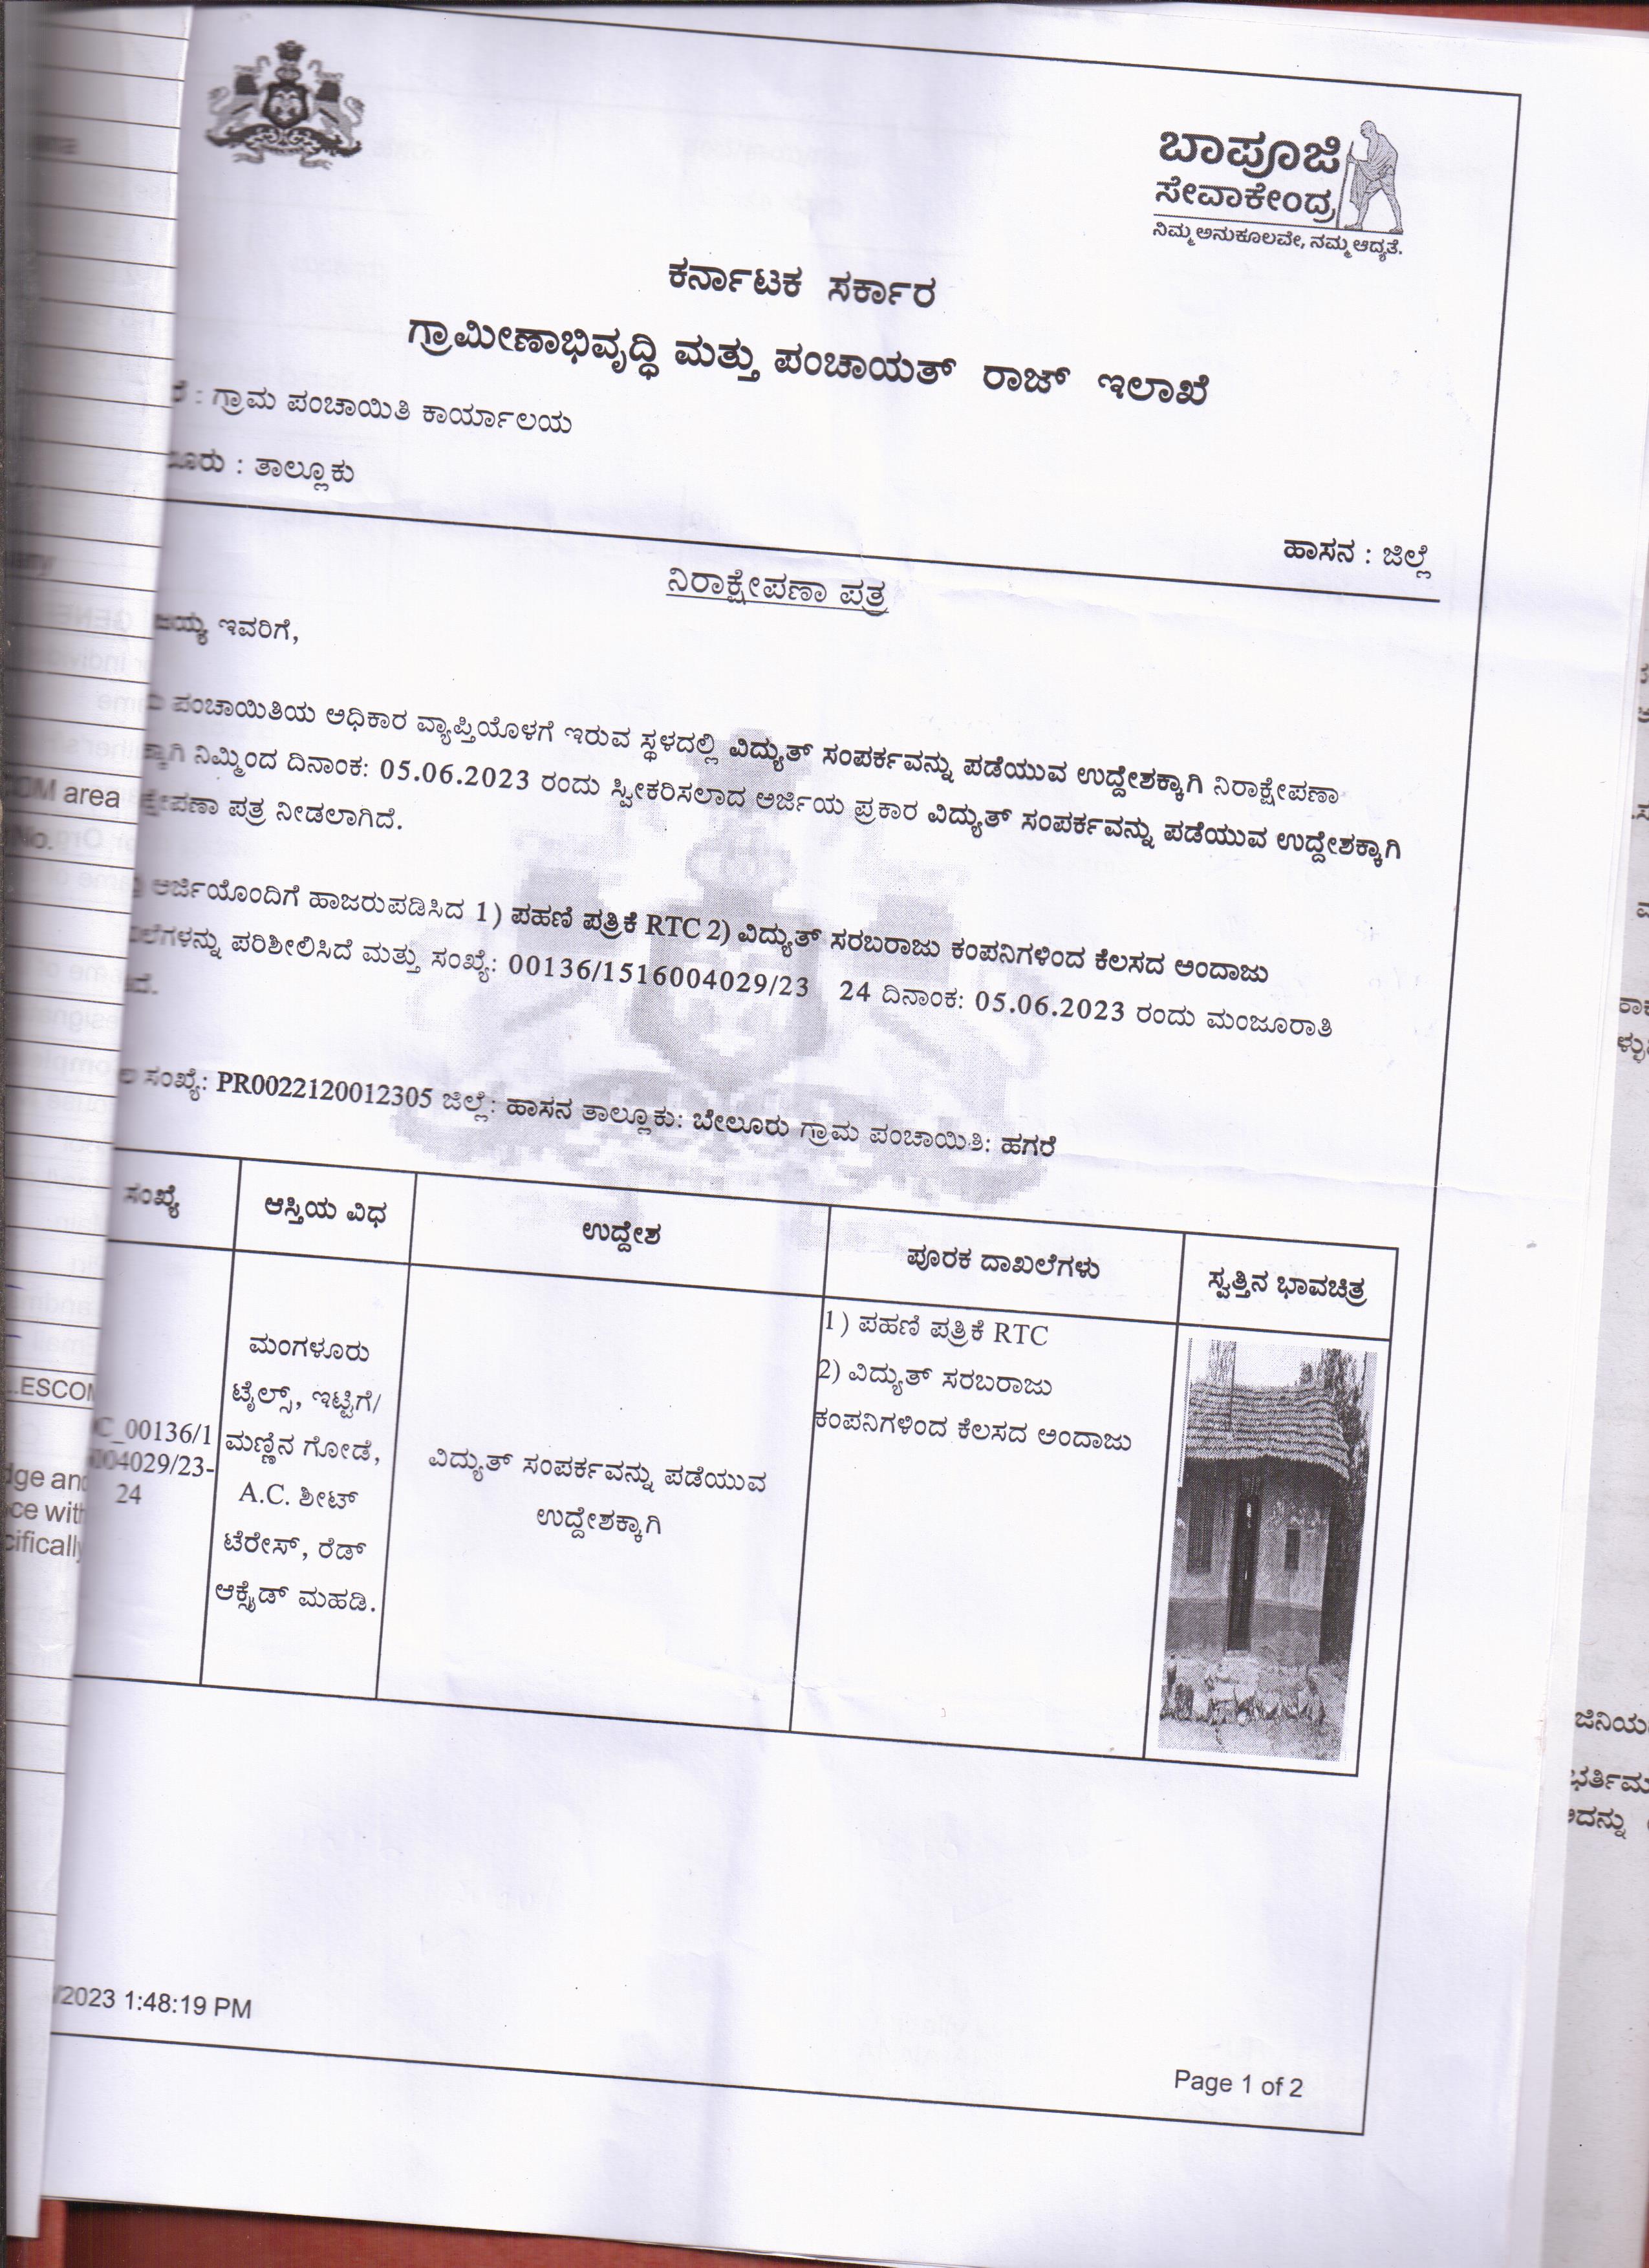 ಬಾಪೂಜಿ
ಸೇವಾಕೇಂದ್ರ
ನಿಮ್ಮ ಅನುಕೂಲವೇ, ನಮ್ಮ ಆದ್ಯತೆ.
ಕರ್ನಾಟಕ ಸರ್ಕಾರ
ಗ್ರಾಮೀಣಾಭಿವೃದ್ಧಿ ಮತ್ತು ಪಂಚಾಯತ್ ರಾಜ್ ಇಲಾಖೆ
: ಗ್ರಾಮ ಪಂಚಾಯಿತಿ ಕಾರ್ಯಾಲಯ
: ತಾಲ್ಲೂಕು
ಹಾಸನ : ಜಿಲ್ಲೆ
ನಿರಾಕ್ಷೇಪಣಾ ಪತ್ರ
ಇವರಿಗೆ,
ಪಂಚಾಯಿತಿಯ ಅಧಿಕಾರ ವ್ಯಾಪ್ತಿಯೊಳಗೆ ಇರುವ ಸ್ಥಳದಲ್ಲಿ ವಿದ್ಯುತ್ ಸಂಪರ್ಕವನ್ನು ಪಡೆಯುವ ಉದ್ದೇಶಕ್ಕಾಗಿ ನಿರಾಕ್ಷೇಪಣಾ
ನಿಮ್ಮಿಂದ ದಿನಾಂಕ: 05.06.2023 ರಂದು ಸ್ವೀಕರಿಸಲಾದ ಅರ್ಜಿಯ ಪ್ರಕಾರ ವಿದ್ಯುತ್ ಸಂಪರ್ಕವನ್ನು ಪಡೆಯುವ ಉದ್ದೇಶಕ್ಕಾಗಿ
ಪತ್ರ ನೀಡಲಾಗಿದೆ.
ಅರ್ಜಿಯೊಂದಿಗೆ ಹಾಜರುಪಡಿಸಿದ 1) ಪಹಣಿ ಪತ್ರಿಕೆ RTC 2) ವಿದ್ಯುತ್ ಸರಬರಾಜು ಕಂಪನಿಗಳಿಂದ ಕೆಲಸದ ಅಂದಾಜು
ಪರಿಶೀಲಿಸಿದೆ ಮತ್ತು ಸಂಖ್ಯೆ: 00136/1516004029/23 24 ದಿನಾಂಕ: 05.06.2023 ರಂದು ಮಂಜೂರಾತಿ
ಸಂಖ್ಯೆ: PR0022120012305 ಜಿಲ್ಲೆ: ಹಾಸನ ತಾಲ್ಲೂಕು: ಬೇಲೂರು ಗ್ರಾಮ ಪಂಚಾಯಿತಿ: ಹಗರೆ
ಸಂಖ್ಯೆ ಆಸ್ತಿಯ ವಿಧ ಉದ್ದೇಶ ಪೂರಕ ದಾಖಲೆಗಳು ಸ್ವತ್ತಿನ ಭಾವಚಿತ್ರ
C_00136/1
004029/23-
24
ಮಂಗಳೂರು
ಟೈಲ್ಸ್, ಇಟ್ಟಿಗೆ/
ಮಣ್ಣಿನ ಗೋಡೆ,
A.C. ಶೀಟ್
ಟೆರೇಸ್, ರೆಡ್
ಆಕ್ಸೈಡ್ ಮಹಡಿ.
ವಿದ್ಯುತ್ ಸಂಪರ್ಕವನ್ನು ಪಡೆಯುವ
ಉದ್ದೇಶಕ್ಕಾಗಿ
1) ಪಹಣಿ ಪತ್ರಿಕೆ RTC
2) ವಿದ್ಯುತ್ ಸರಬರಾಜು
ಕಂಪನಿಗಳಿಂದ ಕೆಲಸದ ಅಂದಾಜು
/2023 1:48:19 PM
Page 1 of 2